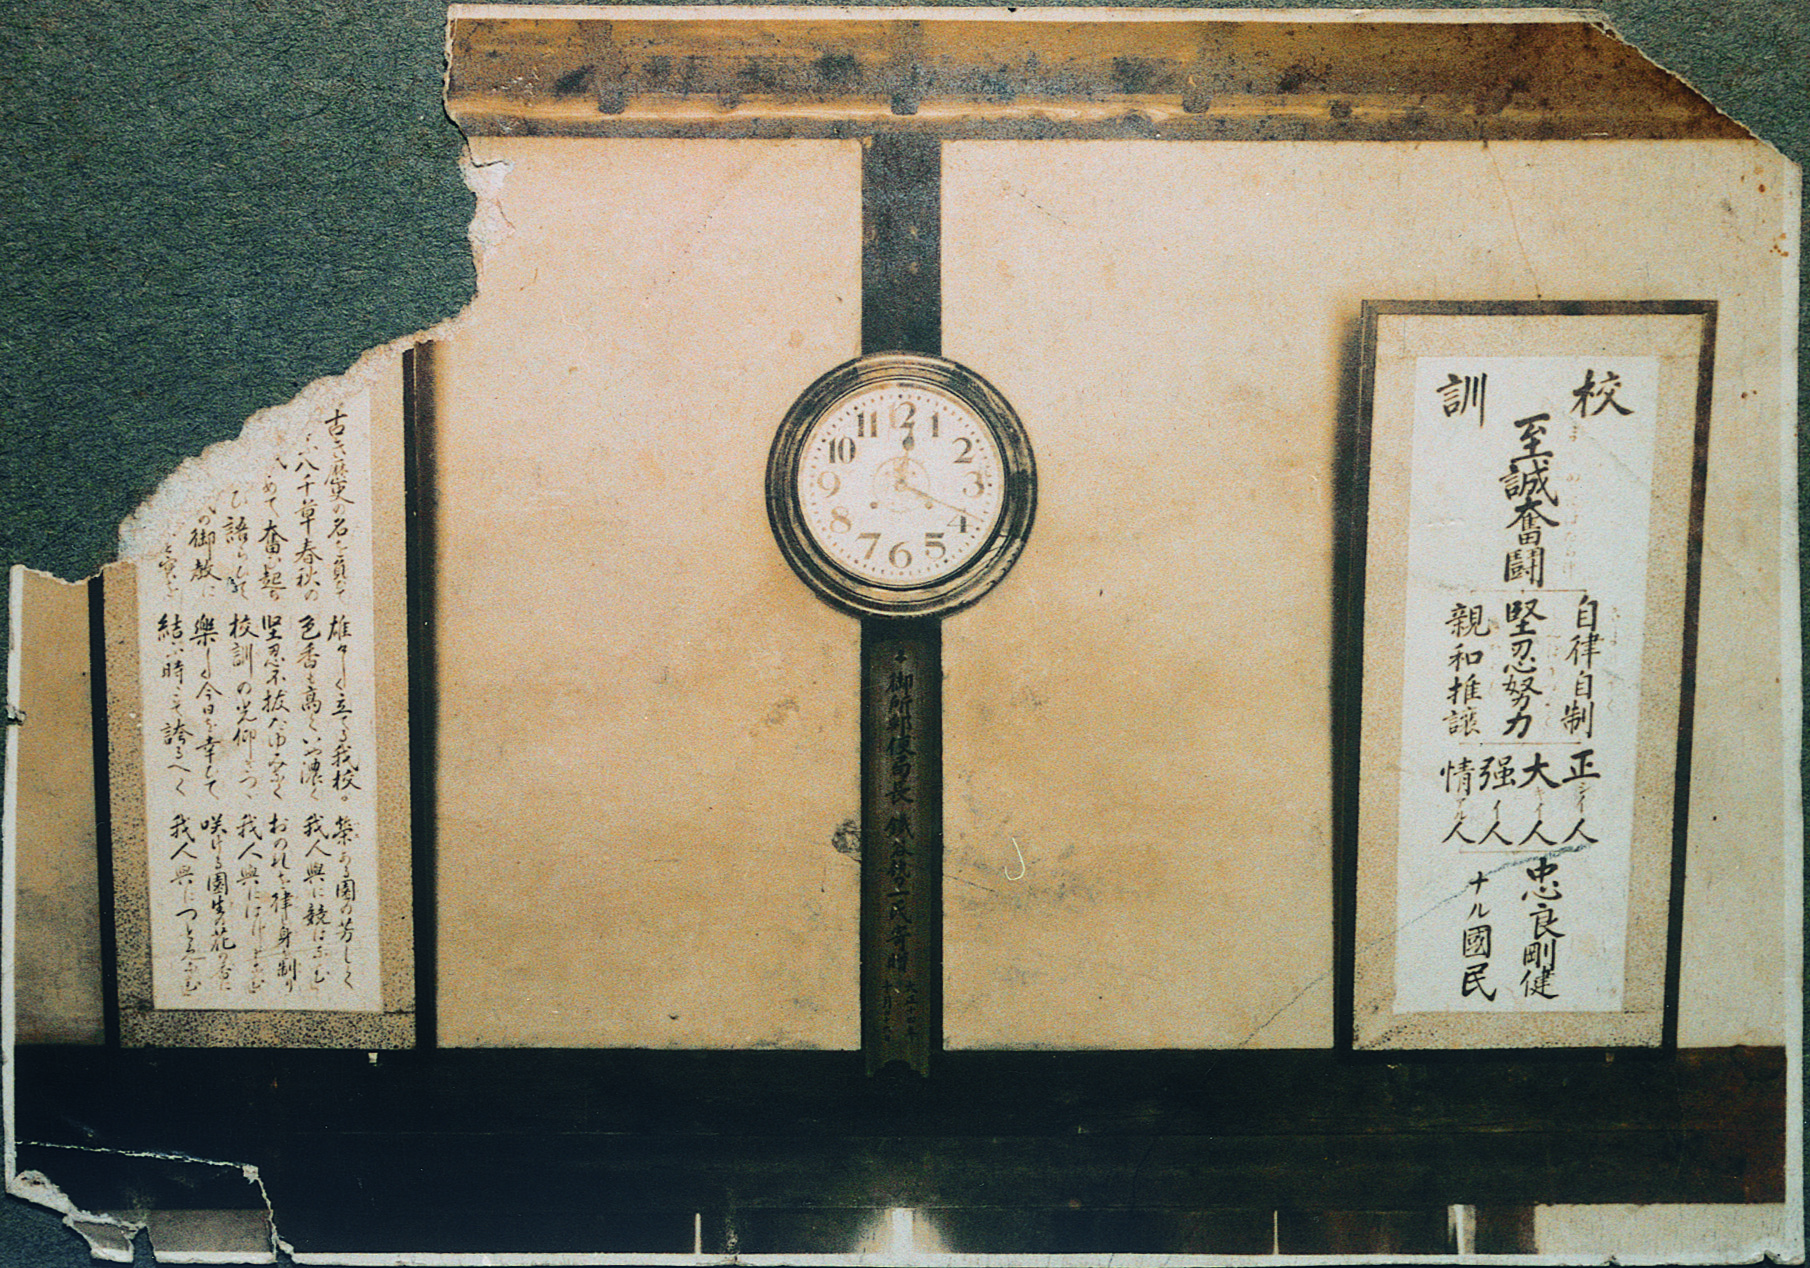 校訓
至誠奮闘
自律自制
堅忍努力
親和推譲
正シイ人
大キイ人
强イ人
情アル人
忠良剛健
ナル國民
12
1
2
3
4
5
6
7
8
9
10
11
御所郵便局長 氏寄時
大正十年
古き歴史の名を負て 雄々しく立てる我校。 榮ある園の芳しく
八千草春秋の 色香も高くいや濃く 我人與に競はなむ
めて奮ひ起ち 堅忍不拔たゆみなく おのれを律し身を制り
ひ語らひて 校訓の光仰ぎつゝ 我人與に
の御教に 樂しく今日を幸して 咲ける園生の花の香に
を 結ぶ時こそ誇るべく 我人與につとめなむ